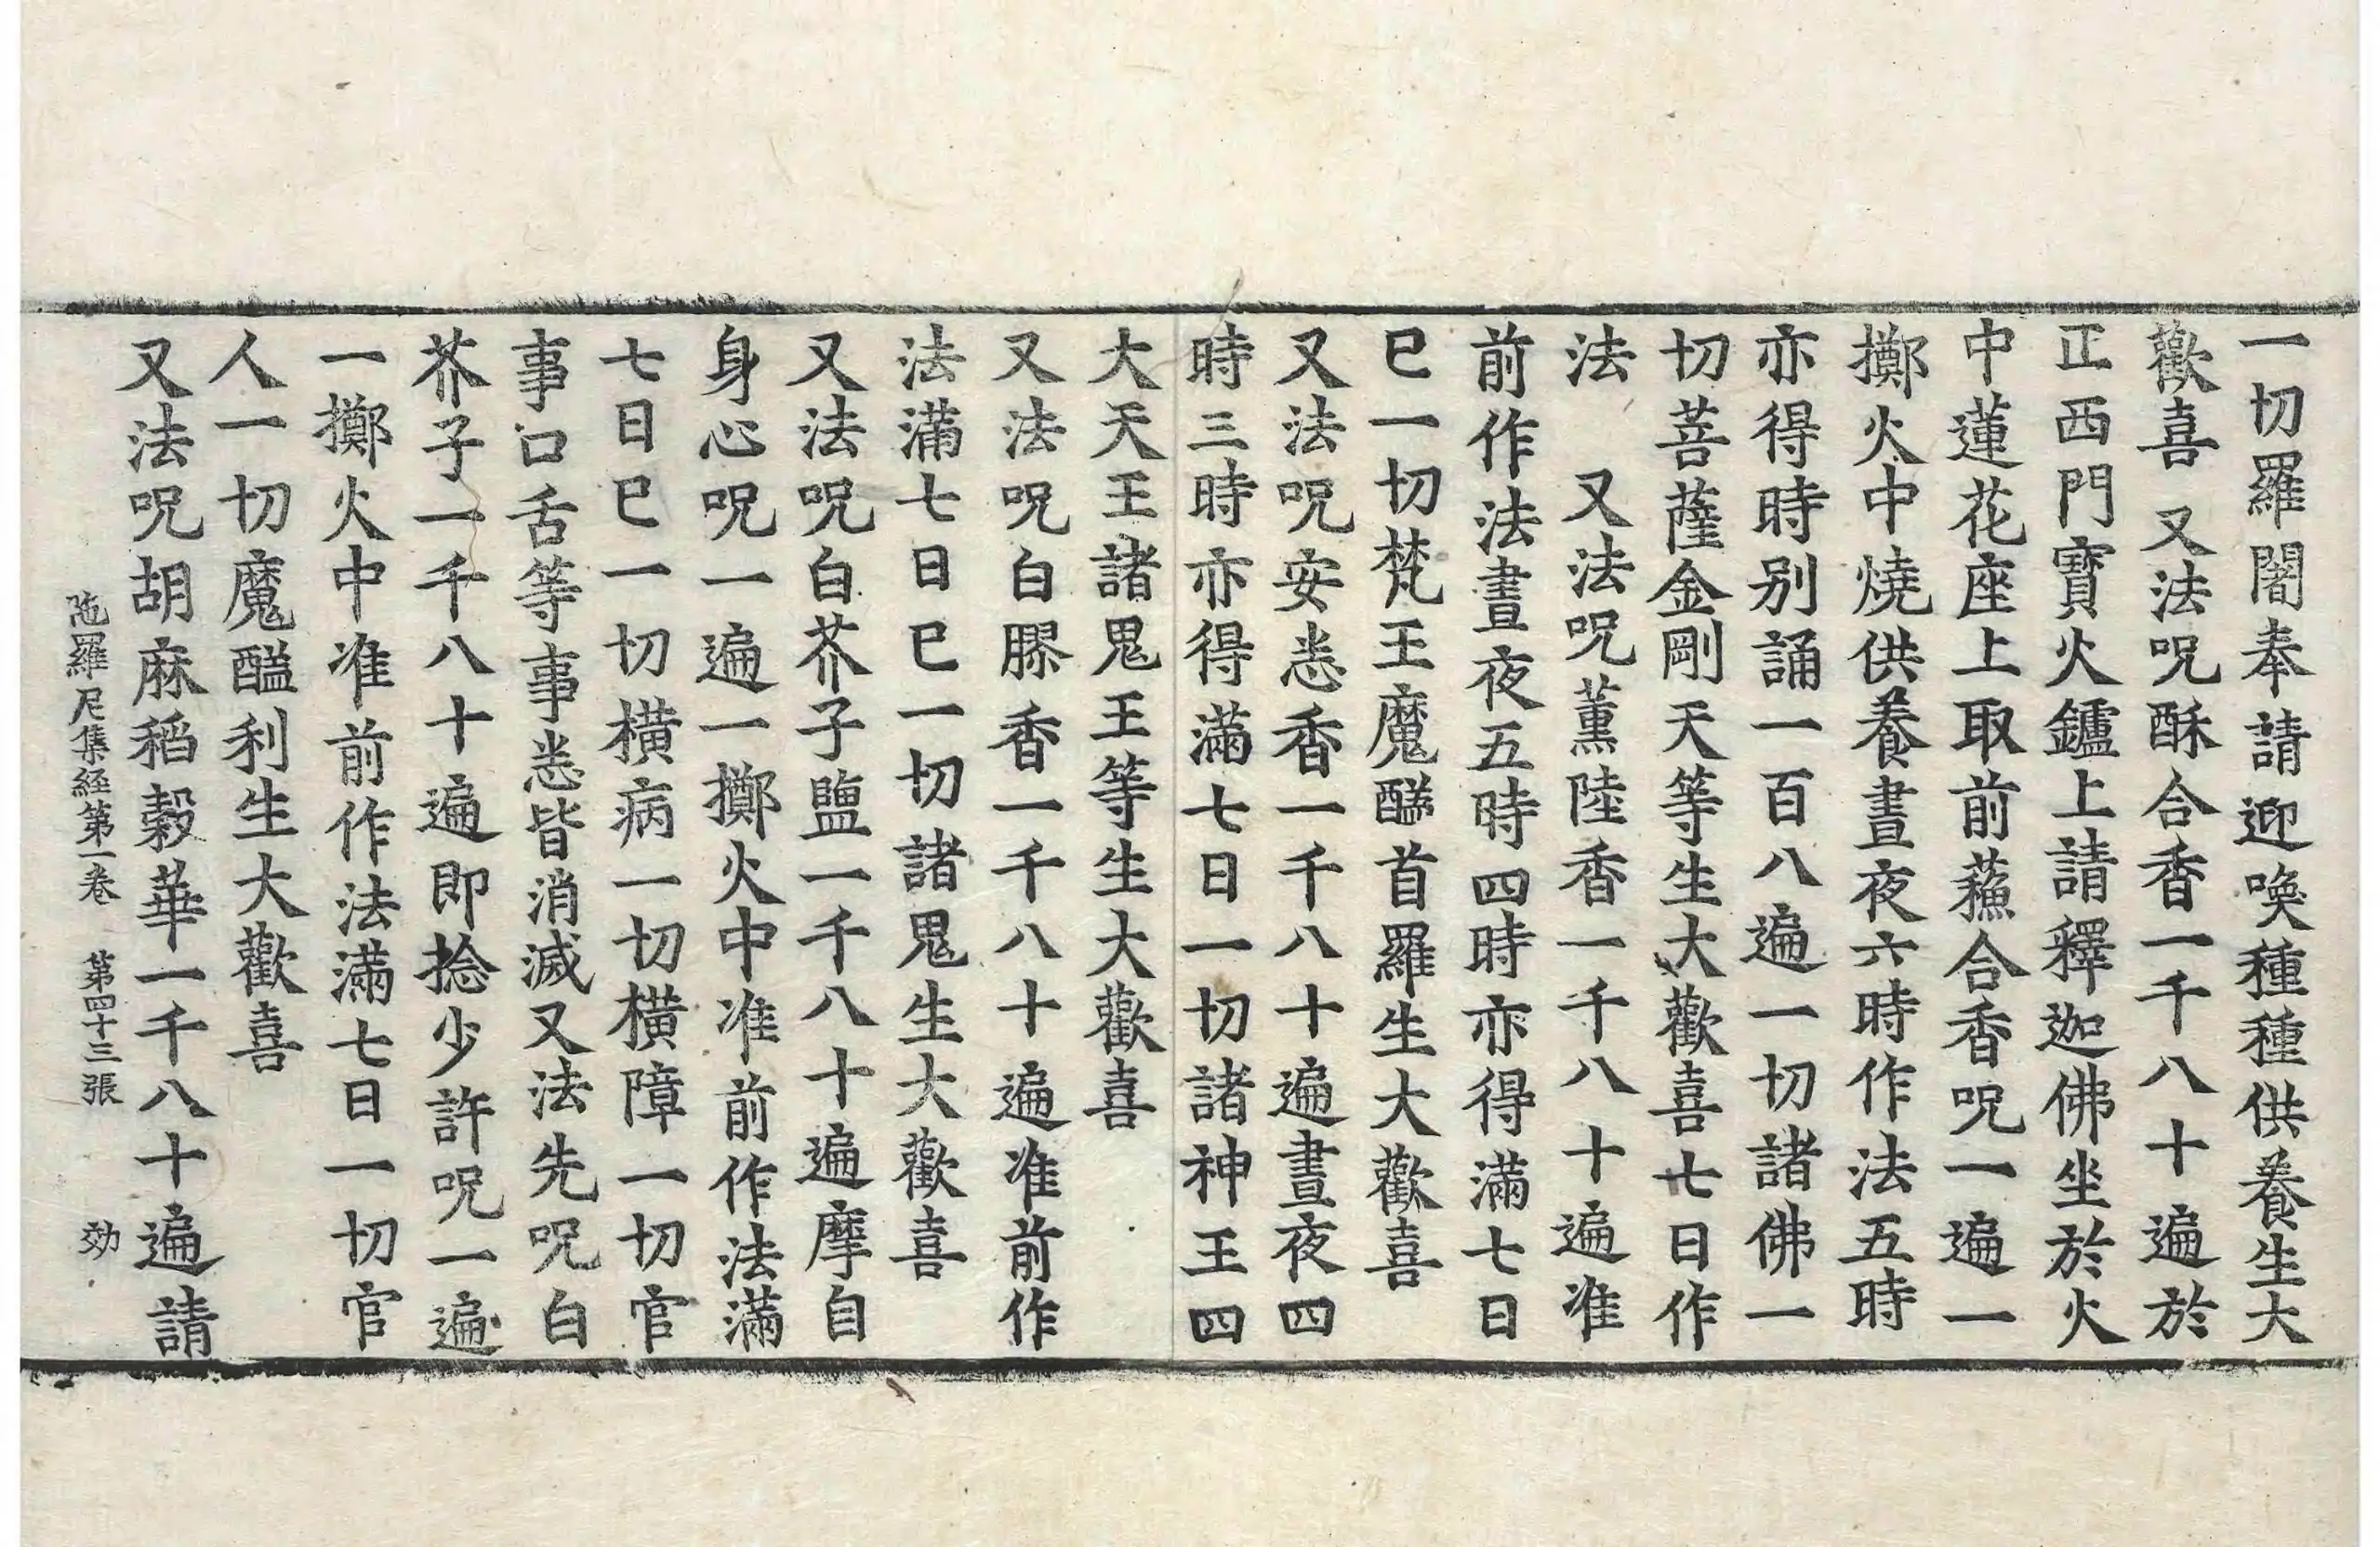 一切羅闍奉請迎喚種種供養生大
歡喜 又法呪酥合香一千八十遍於
正西門寶火鑪上請釋迦佛坐於火
中蓮花座上取前蘓合香呪一遍一
擲火中燒供養晝夜六時作法五時
亦得時別誦一百八遍一切諸佛一
切菩薩金剛天等生大歡喜七日作
法 又法呪薰陸香一千八十遍准
前作法晝夜五時四時亦得滿七日
已一切梵王魔醯首羅生大歡喜
又法呪安悉香一千八十遍晝夜四
時三時亦得滿七日一切諸神王四
大天王諸鬼王等生大歡喜
又法呪白膠香一千八十遍准前作
法滿七日已一切諸鬼生大歡喜
又法呪白芥子鹽一千八十遍摩自
身心呪一遍一擲火中准前作法滿
七日已一切橫病一切橫障一切官
事口舌等事悉皆消滅又法先呪白
芥子一千八十遍即捻少許呪一遍
一擲火中准前作法滿七日一切官
人一切魔醯利生大歡喜
又法呪胡麻稻穀華一千八十遍請
陁羅尼集経第一卷 第四十三張 効